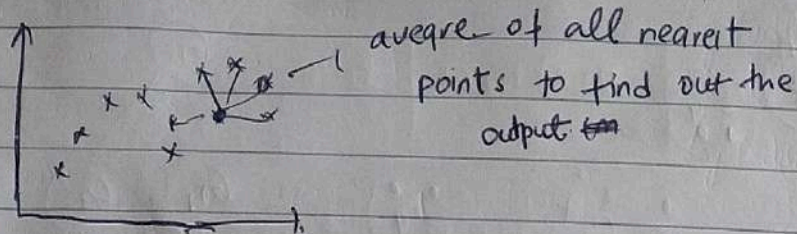 aveqre of all nearest
points to find out the
output